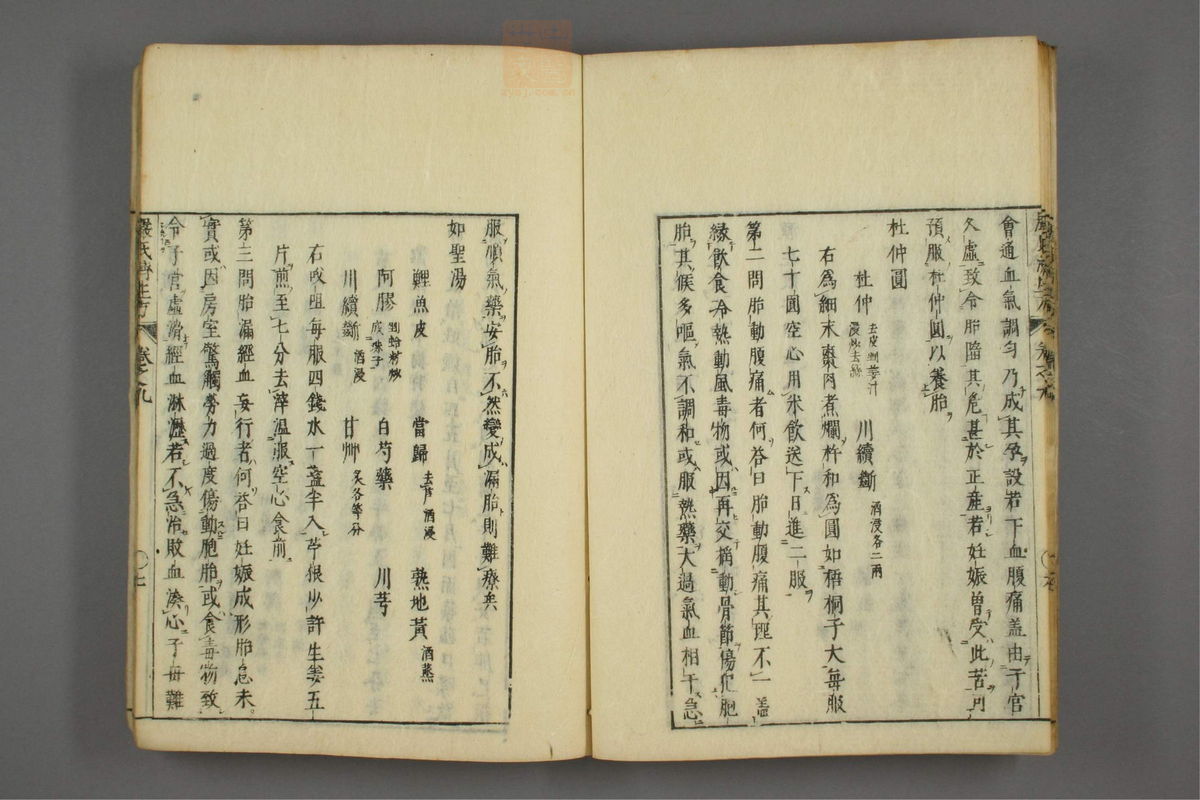 會通血氣調匀乃成其孕設若下血腹痛盖由子宫
久虛致令胎墮其危甚於正産若妊娠曽受此苦可
預服杜仲圓以養胎
杜仲圓
杜仲 去皮剉姜汁浸炒去絲 川續斷 酒浸各二兩
右爲細末棗肉煮爛杵和爲圓如梧桐子大每服
七十圓空心用米飲送下日進二服
第二問胎動腹痛者何答曰胎動腹痛其理不一盖
縁飲食冷熱動風毒物或因再交摇動骨節傷犯胞
胎其候多嘔氣不調和或服熱藥太過氣血相干急
服順氣藥安胎不然變成漏胎則難療矣
如聖湯
鯉魚皮 當歸 去芦酒浸 熟地黄 酒蒸
阿膠 剉蛤粉炒成珠子 白芍藥 川芎
川續斷 酒浸 甘艸 炙各等分
右㕮咀每服四錢水一盞半入苧根少許生姜五
片煎至七分去滓温服空心食前
第三問胎漏經血妄行者何答曰妊娠成形胎息未
實或因房室驚觸勞力過度傷動胞胎或食毒物致
令子宫虛滑經血淋瀝若不急治敗血凑心子母難
嚴氏濟生方 卷之九